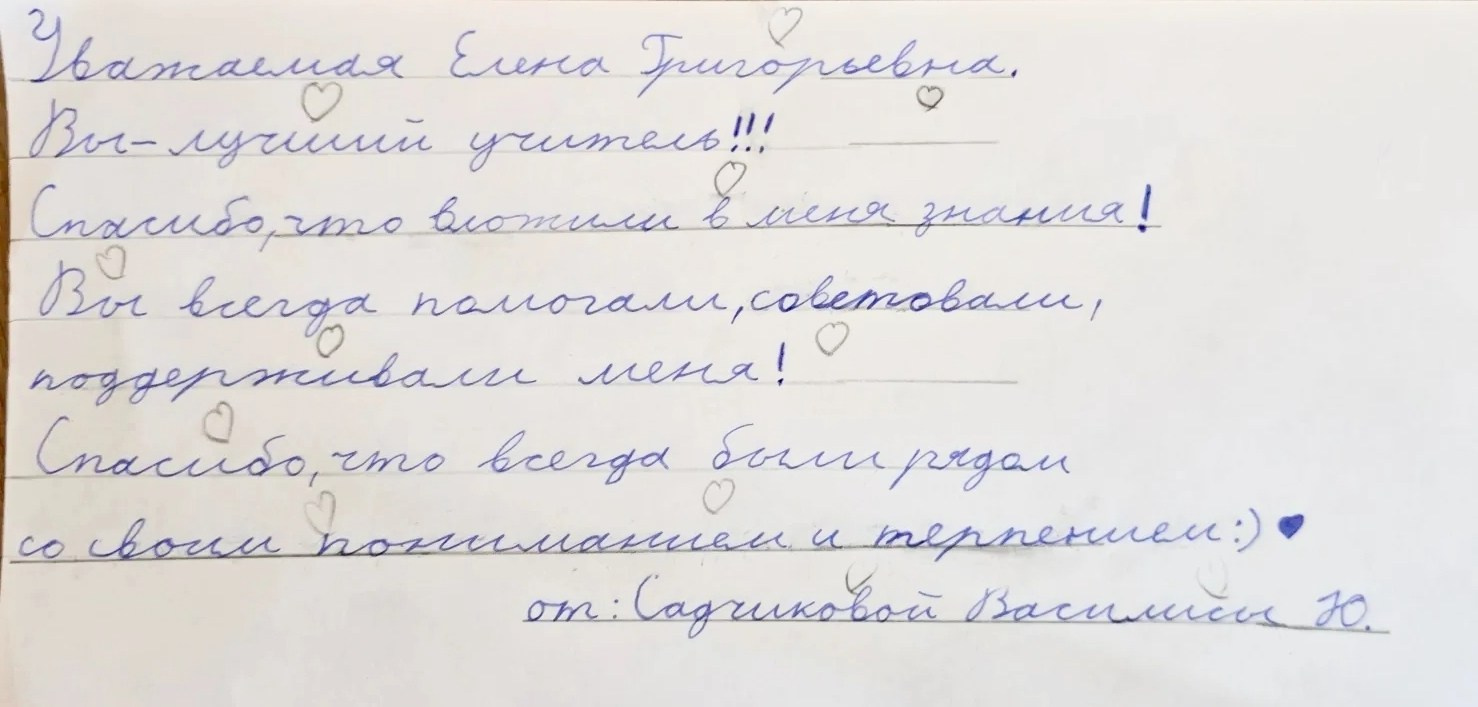 Уважаемая Елена Григорьевна.
Вы - лучший учитель!!!
Спасибо, что вложили в меня знания!
Вы всегда помогали, советовали,
поддерживали меня!
Спасибо, что всегда были рядом
со своим пониманием и терпением:) ♥
от: Садчиковой Василисы Ю.